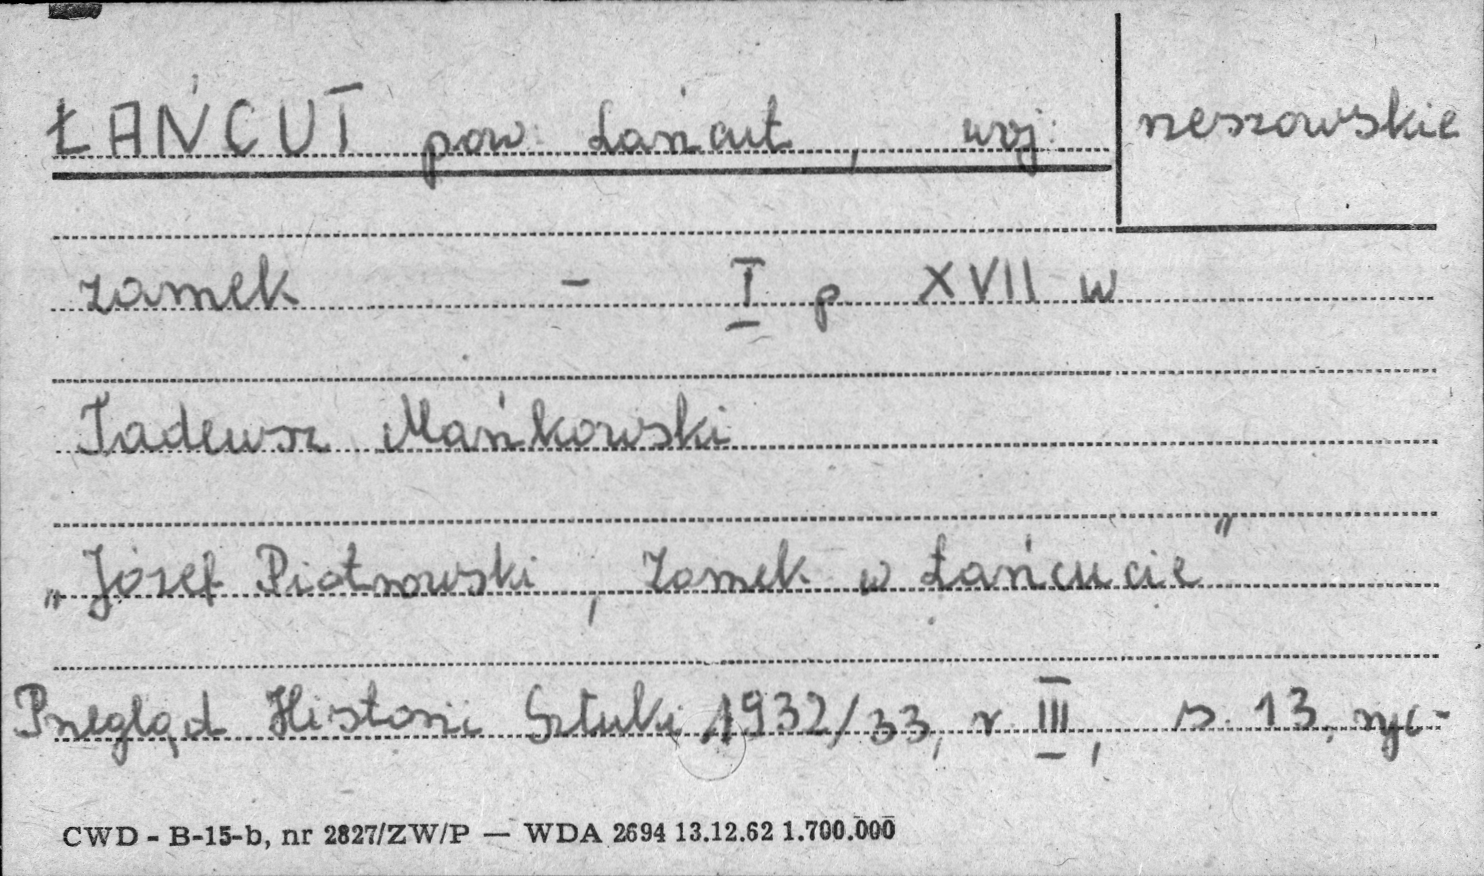 ŁAŃCUT pow. Łańcut, woj. rzeszowskie
zamek - I p XVII w
Tadeusz Mańkowski
„Józef Piotrowski, Zamek w Łańcucie”
Przegląd Historii Sztuki 1932/33, r III, s. 13, ryc-
CWD - B-15-b, nr 2827/ZW/P — WDA 2694 13.12.62 1.700.000